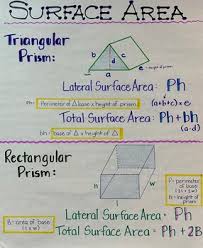 SURFACE AREA
Triangular
Prism:
b
d
c
e = height of prism
a
Lateral Surface Area: Ph
Ph = Perimeter of △ base x height of prism
(a+b+c)×e
Total Surface Area: Ph + bh
bh = base of △ x height of △
(a·d)
Rectangular
Prism:
h
w
l
P = perimeter
of base
h = height of
prism
B = area of base
(l x w)
Lateral Surface Area = Ph
Total Surface Area = Ph + 2B